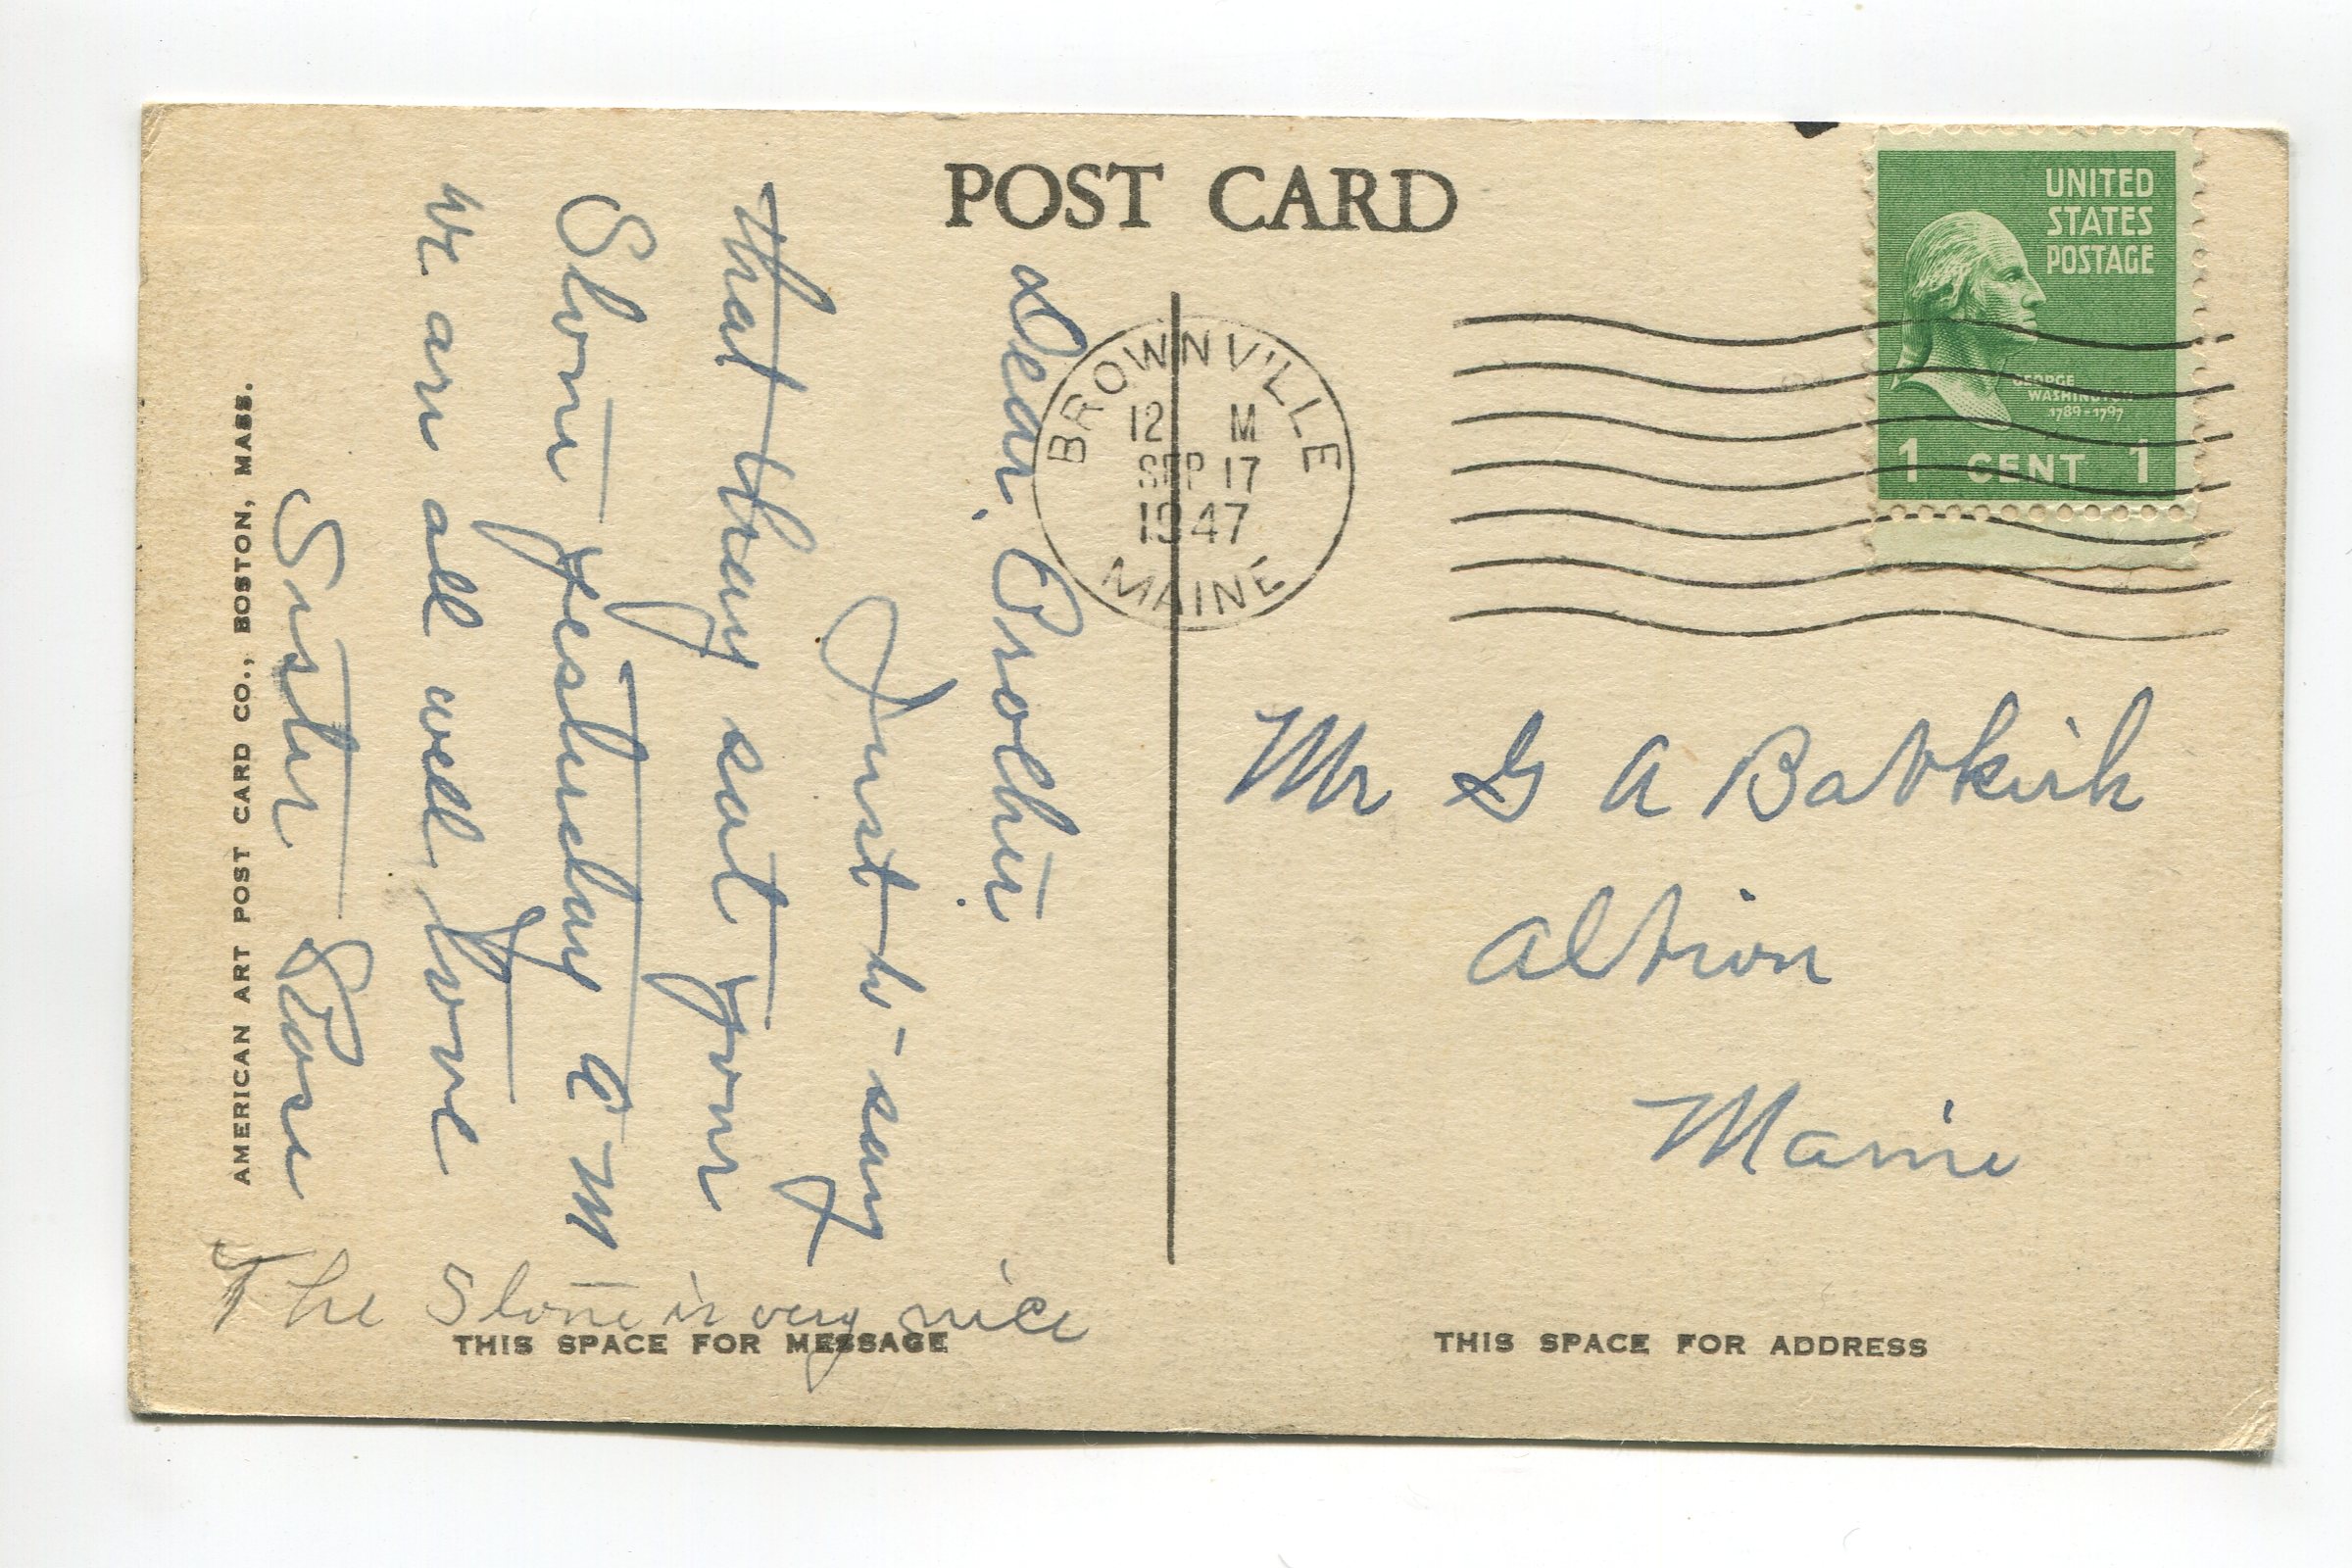 POST CARD
UNITED
STATES
POSTAGE
GEORGE
WASHINGTON
1789-1797
1 CENT 1
BROWNVILLE
12 M
SEP 17
1947
MAINE
Dear Brother
Just to say
that they sat your
Stone yesterday A M
We are all well Love
Sister Rose
The Stone is very nice
Mr G A
Albion
Maine
AMERICAN ART POST CARD CO., BOSTON, MASS.
THIS SPACE FOR MESSAGE
THIS SPACE FOR ADDRESS